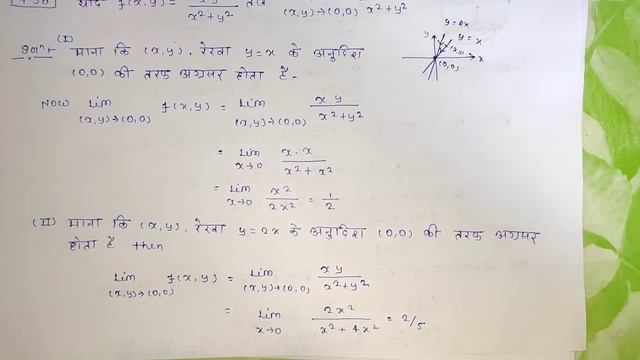 यदि f(x,y) = xy / x²+y² तब (x,y)→(0,0) x²+y²
y=2x
y=x
y
x
(0,0)
(I) माना कि (x,y), रेखा y=x के अनुदिश
(0,0) की तरफ अग्रसर होता है -
Now Lim (x,y)→(0,0) f(x,y) = Lim (x,y)→(0,0) xy / x²+y²
= Lim x→0 x·x / x²+x²
= Lim x→0 x² / 2x² = 1/2
(II) माना कि (x,y), रेखा y=2x के अनुदिश (0,0) की तरफ अग्रसर
होता है then
Lim (x,y)→(0,0) f(x,y) = Lim (x,y)→(0,0) xy / x²+y²
= Lim x→0 2x² / x²+4x² = 2/5